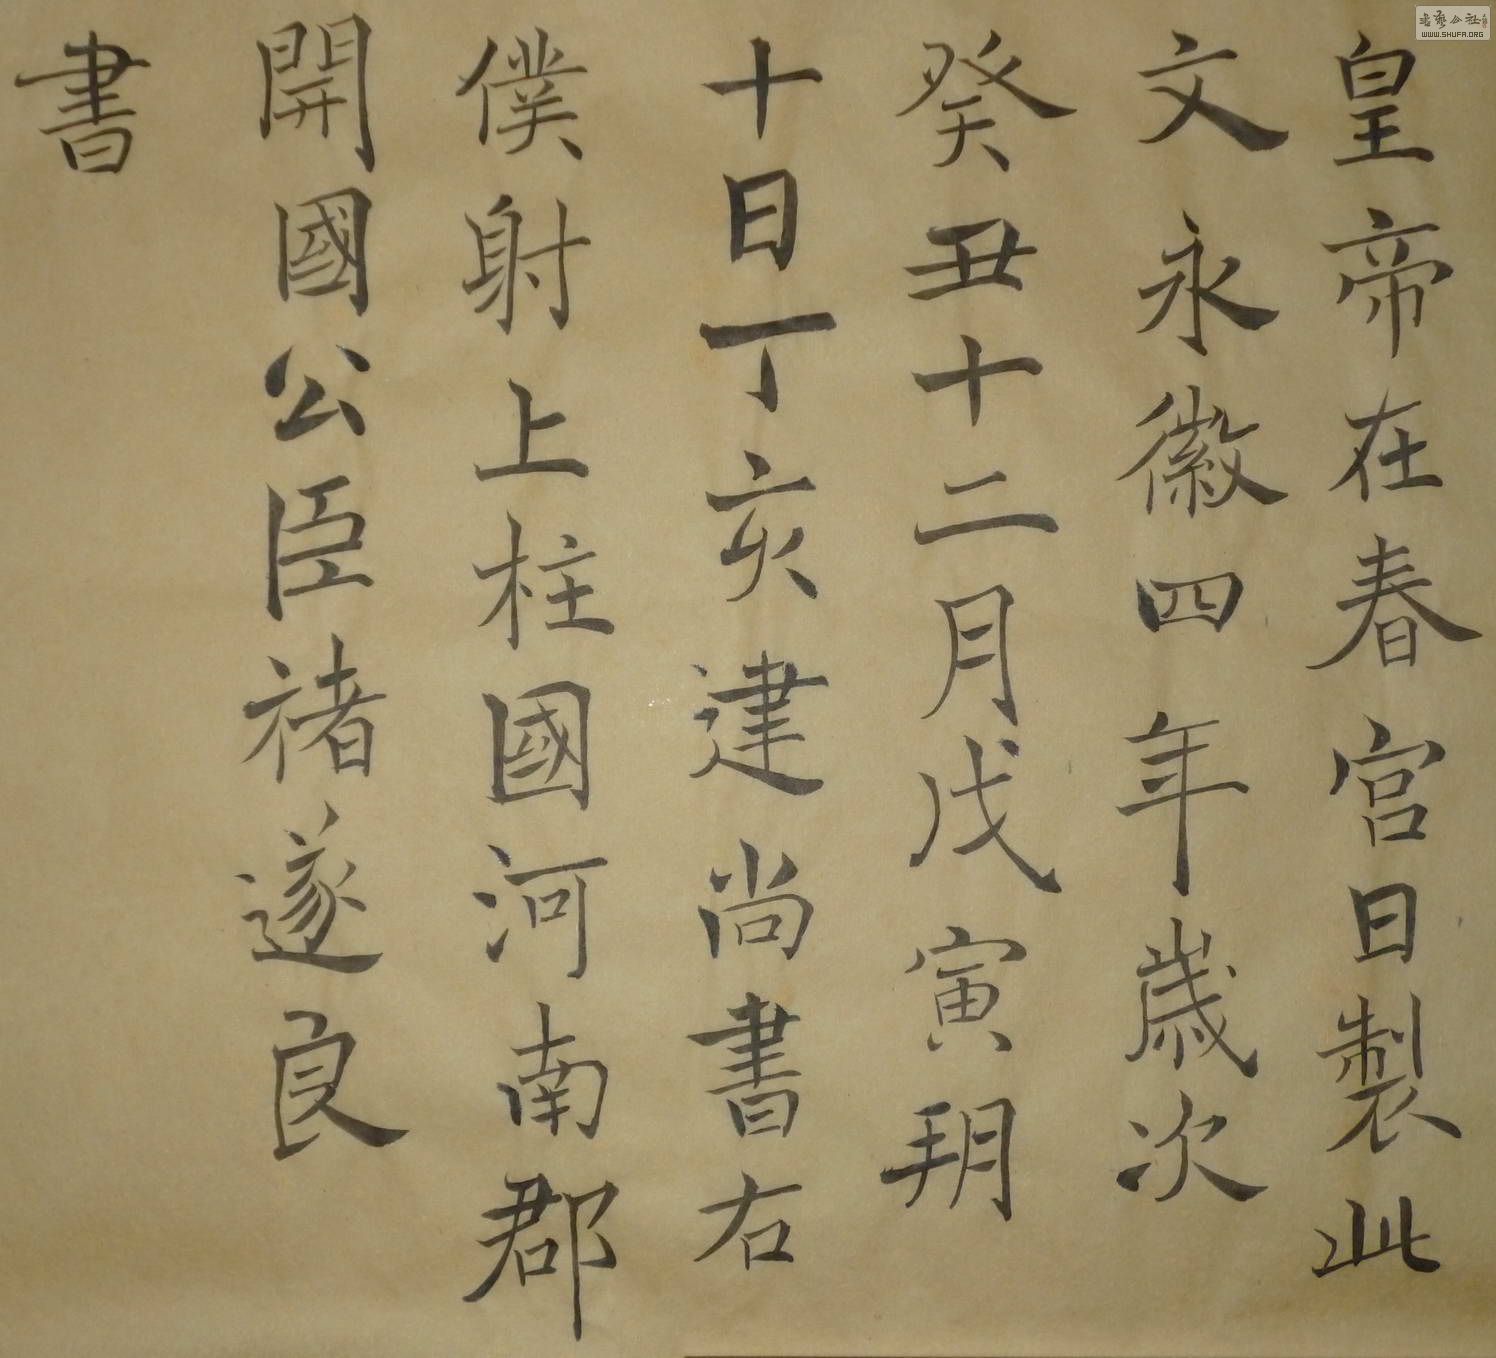 皇帝在春宮日製此
文永徽四年歲次
癸丑十二月戊寅朔
十日丁亥建尚書右
僕射上柱國河南郡
開國公臣褚遂良
書
WWW.SHUFA.ORG